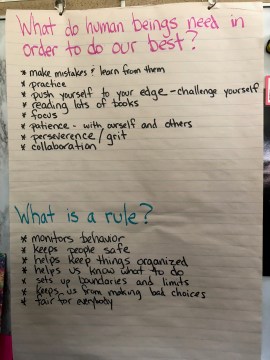 What do human beings need in
order to do our best?
* make mistakes & learn from them
* practice
* push yourself to your edge - challenge yourself
* reading lots of books
* focus
* patience - with ourself and others
* perseverence/grit
* collaboration
What is a rule?
* monitors behavior
* keeps people safe
* helps keep things organized
* helps us know what to do
* sets up boundaries and limits
* keeps us from making bad choices
* fair for everybody